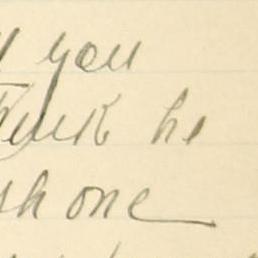 you
think he
one